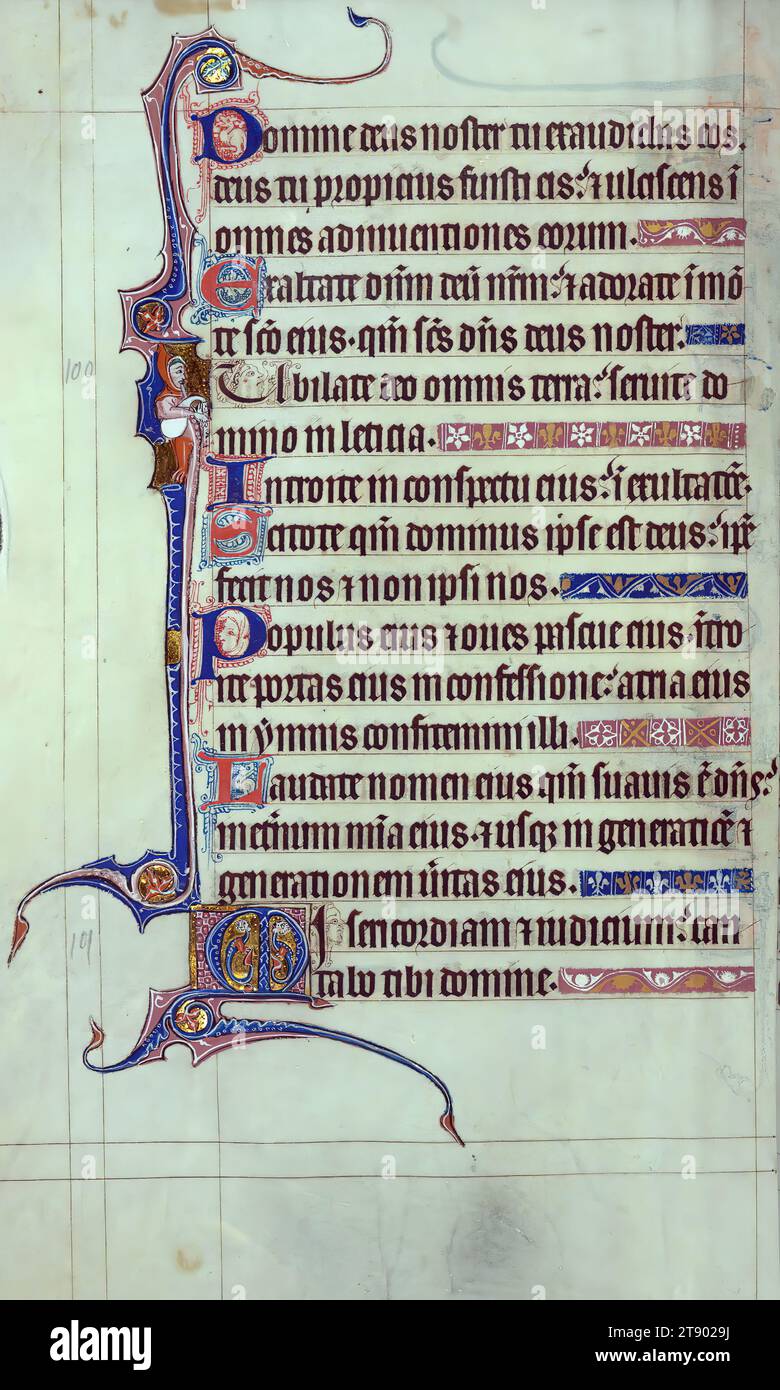 Domine deus noster tu exaudiebas eos.
deus tu propicius fuisti eis. ⁊ ulciscens ī
omnes adinuentiones eorum.
Exaltate dn̄m deū nr̄m. ⁊ adorate ī mō
te sc̄o eius. qm̄ sc̄s dn̄s deus noster.
100
Iubilate deo omnis terra. seruite do
mino in leticia.
Introite in conspectu eius. ī exultatōe.
Scitote qm̄ dominus ipse est deus. ip̄e
fecit nos ⁊ non ipsi nos.
Populus eius ⁊ oues pascue eius. ītro
ite portas eius in confessione. atria eius
in ẏmnis confitemini illi.
Laudate nomen eius qm̄ suauis ē dn̄s.
in et̄num mīa eius. ⁊ usq; in generatōē ⁊
generationem ūitas eius.
101
Misericordiam ⁊ iudicium. can
tabo tibi domine.
alamy
Image ID: 2T9029J
www.alamy.com